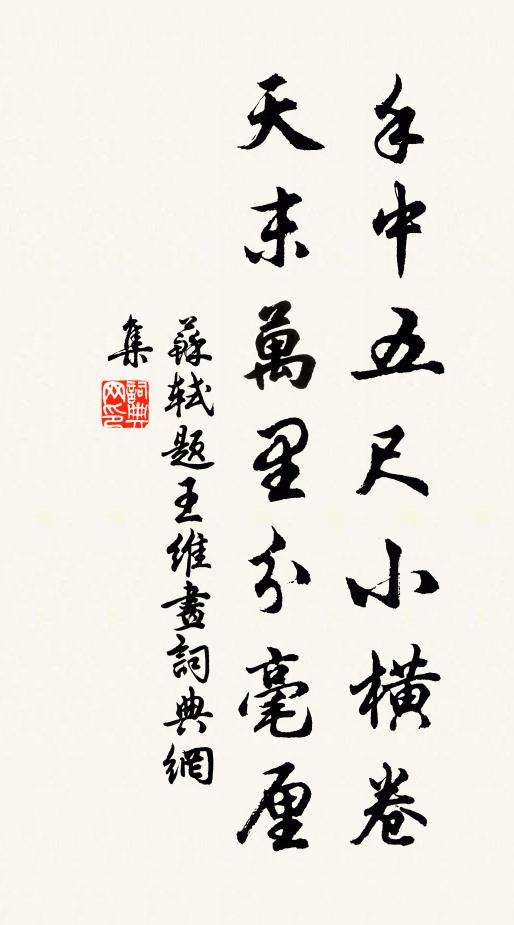 手中五尺小橫卷
天末萬里分毫厘
蘇軾題王維畫詞典網
集
詞典網印